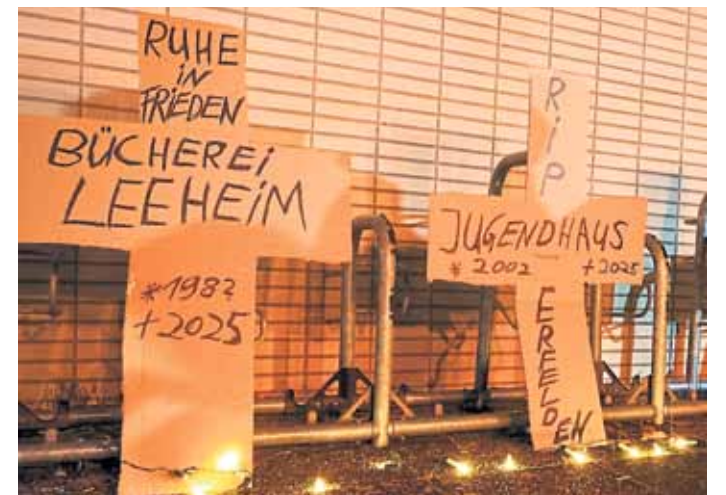 RUHE
iN
FRiEDEN
BÜCHEREi
LEEHEiM
*1982
+2025
RiP
JUGENDHAUS
* 2002 +2025
ERFELDEN